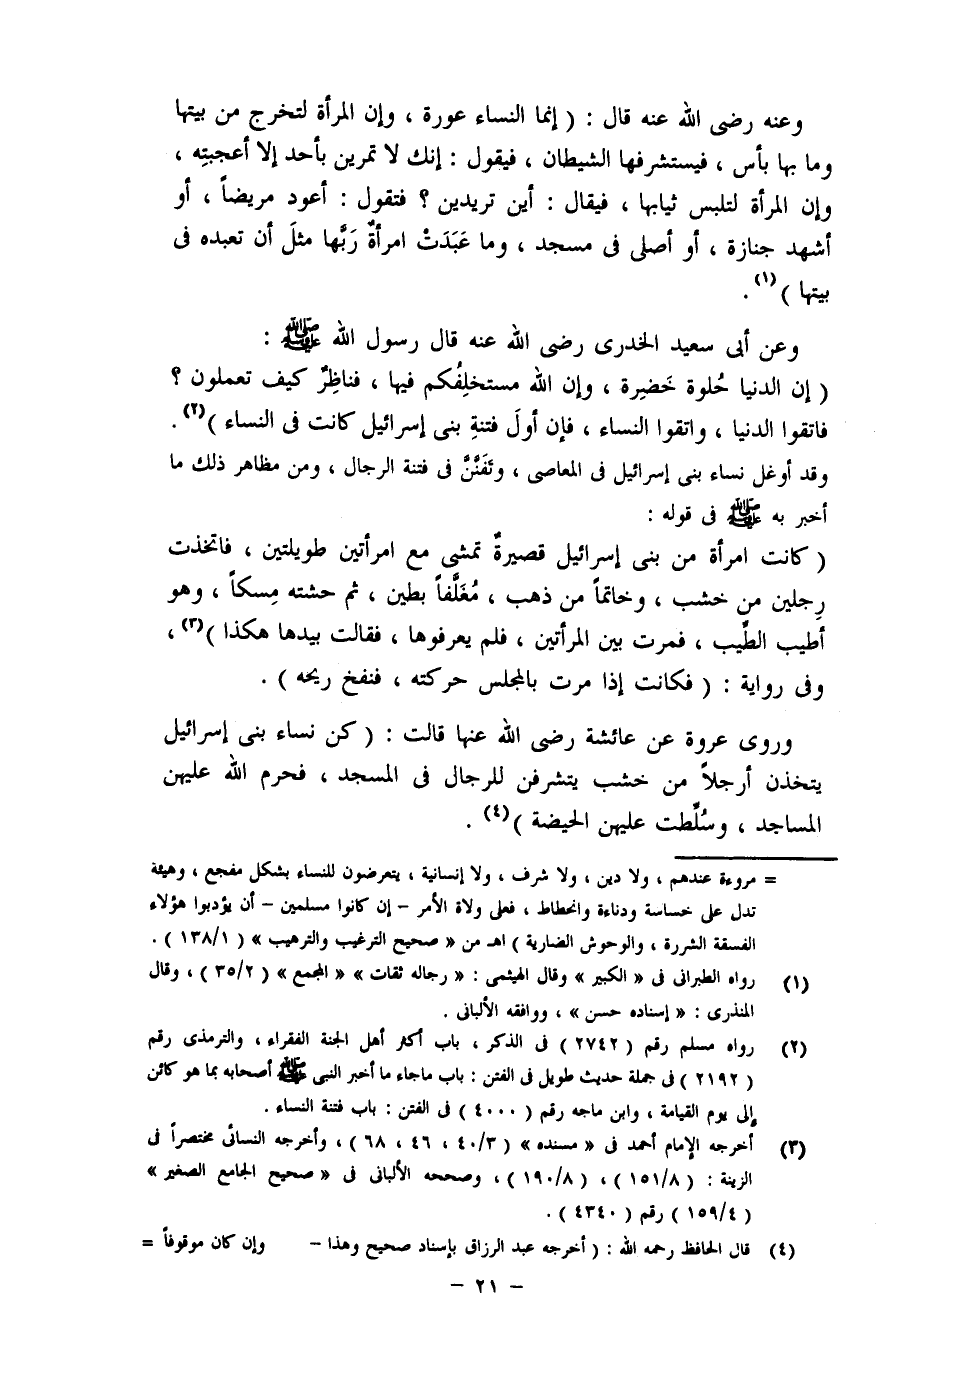 وعنه رضى الله عنه قال : ( إنما النساء عورة ، وإن المرأة لتخرج من بيتها
وما بها بأس ، فيستشرفها الشيطان ، فيقول : إنك لا تمرين بأحد إلا أعجبتِه ،
وإن المرأة لتلبس ثيابها ، فيقال : أين تريدين ؟ فتقول : أعود مريضاً ، أو
أشهد جنازة ، أو أصلى فى مسجد ، وما عَبَدَتْ امرأةٌ رَبَّها مثلَ أن تعبده فى
بيتها )(١) .
وعن أبى سعيد الخدرى رضى الله عنه قال رسول الله ﷺ :
( إن الدنيا حُلوة خَضِرة ، وإن الله مستخلِفُكم فيها ، فناظِرٌ كيف تعملون ؟
فاتقوا الدنيا ، واتقوا النساء ، فإن أولَ فتنةِ بنى إسرائيل كانت فى النساء )(٢) .
وقد أوغل نساء بنى إسرائيل فى المعاصى ، وتَفَنَّنَّ فى فتنة الرجال ، ومن مظاهر ذلك ما
أخبر به ﷺ فى قوله :
( كانت امرأة من بنى إسرائيل قصيرةٌ تمشى مع امرأتين طويلتين ، فاتخذت
رِجلين من خشب ، وخاتماً من ذهب ، مُغَلَّفاً بطين ، ثم حشته مِسكاً ، وهو
أطيب الطِّيب ، فمرت بين المرأتين ، فلم يعرفوها ، فقالت بيدها هكذا )(٣) ،
وفى رواية : ( فكانت إذا مرت بالمجلس حركته ، فنفخ ريحه ) .
وروى عروة عن عائشة رضى الله عنها قالت : ( كن نساء بنى إسرائيل
يتخذن أرجلاً من خشب يتشرفن للرجال فى المسجد ، فحرم الله عليهن
المساجد ، وسُلِّطت عليهن الحيضة )(٤) .
= مروءة عندهم ، ولا دين ، ولا شرف ، ولا إنسانية ، يتعرضون للنساء بشكل مفجع ، وهيئة
تدل على خساسة ودناءة وانحطاط ، فعلى ولاة الأمر - إن كانوا مسلمين - أن يؤدبوا هؤلاء
الفسقة الشررة ، والوحوش الضارية ) اهـ من « صحيح الترغيب والترهيب » ( ١٣٨/١ ) .
(١) رواه الطبرانى فى « الكبير » وقال الهيثمى : « رجاله ثقات » « المجمع » ( ٣٥/٢ ) ، وقال
المنذرى : « إسناده حسن » ، ووافقه الألبانى .
(٢) رواه مسلم رقم ( ٢٧٤٢ ) فى الذكر ، باب أكثر أهل الجنة الفقراء ، والترمذى رقم
( ٢١٩٢ ) فى جملة حديث طويل فى الفتن : باب ماجاء ما أخبر النبى ﷺ أصحابه بما هو كائن
إلى يوم القيامة ، وابن ماجه رقم ( ٤٠٠٠ ) فى الفتن : باب فتنة النساء .
(٣) أخرجه الإمام أحمد فى « مسنده » ( ٤٠/٣ ، ٤٦ ، ٦٨ ) ، وأخرجه النسائى مختصراً فى
الزينة : ( ١٥١/٨ ) ، ( ١٩٠/٨ ) ، وصححه الألبانى فى « صحيح الجامع الصغير »
( ١٥٩/٤ ) رقم ( ٤٣٤٠ ) .
(٤) قال الحافظ رحمه الله : ( أخرجه عبد الرزاق بإسناد صحيح وهذا - وإن كان موقوفاً =
- ٢١ -